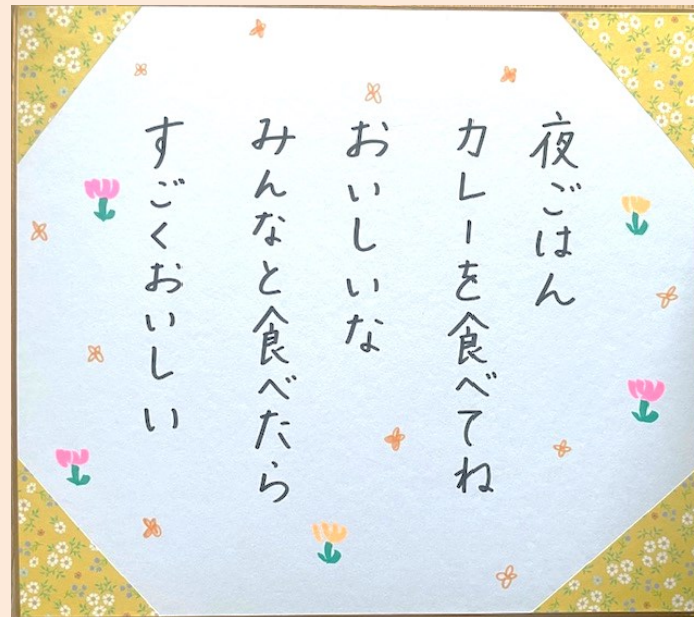 夜ごはん
カレーを食べてね
おいしいな
みんなと食べたら
すごくおいしい